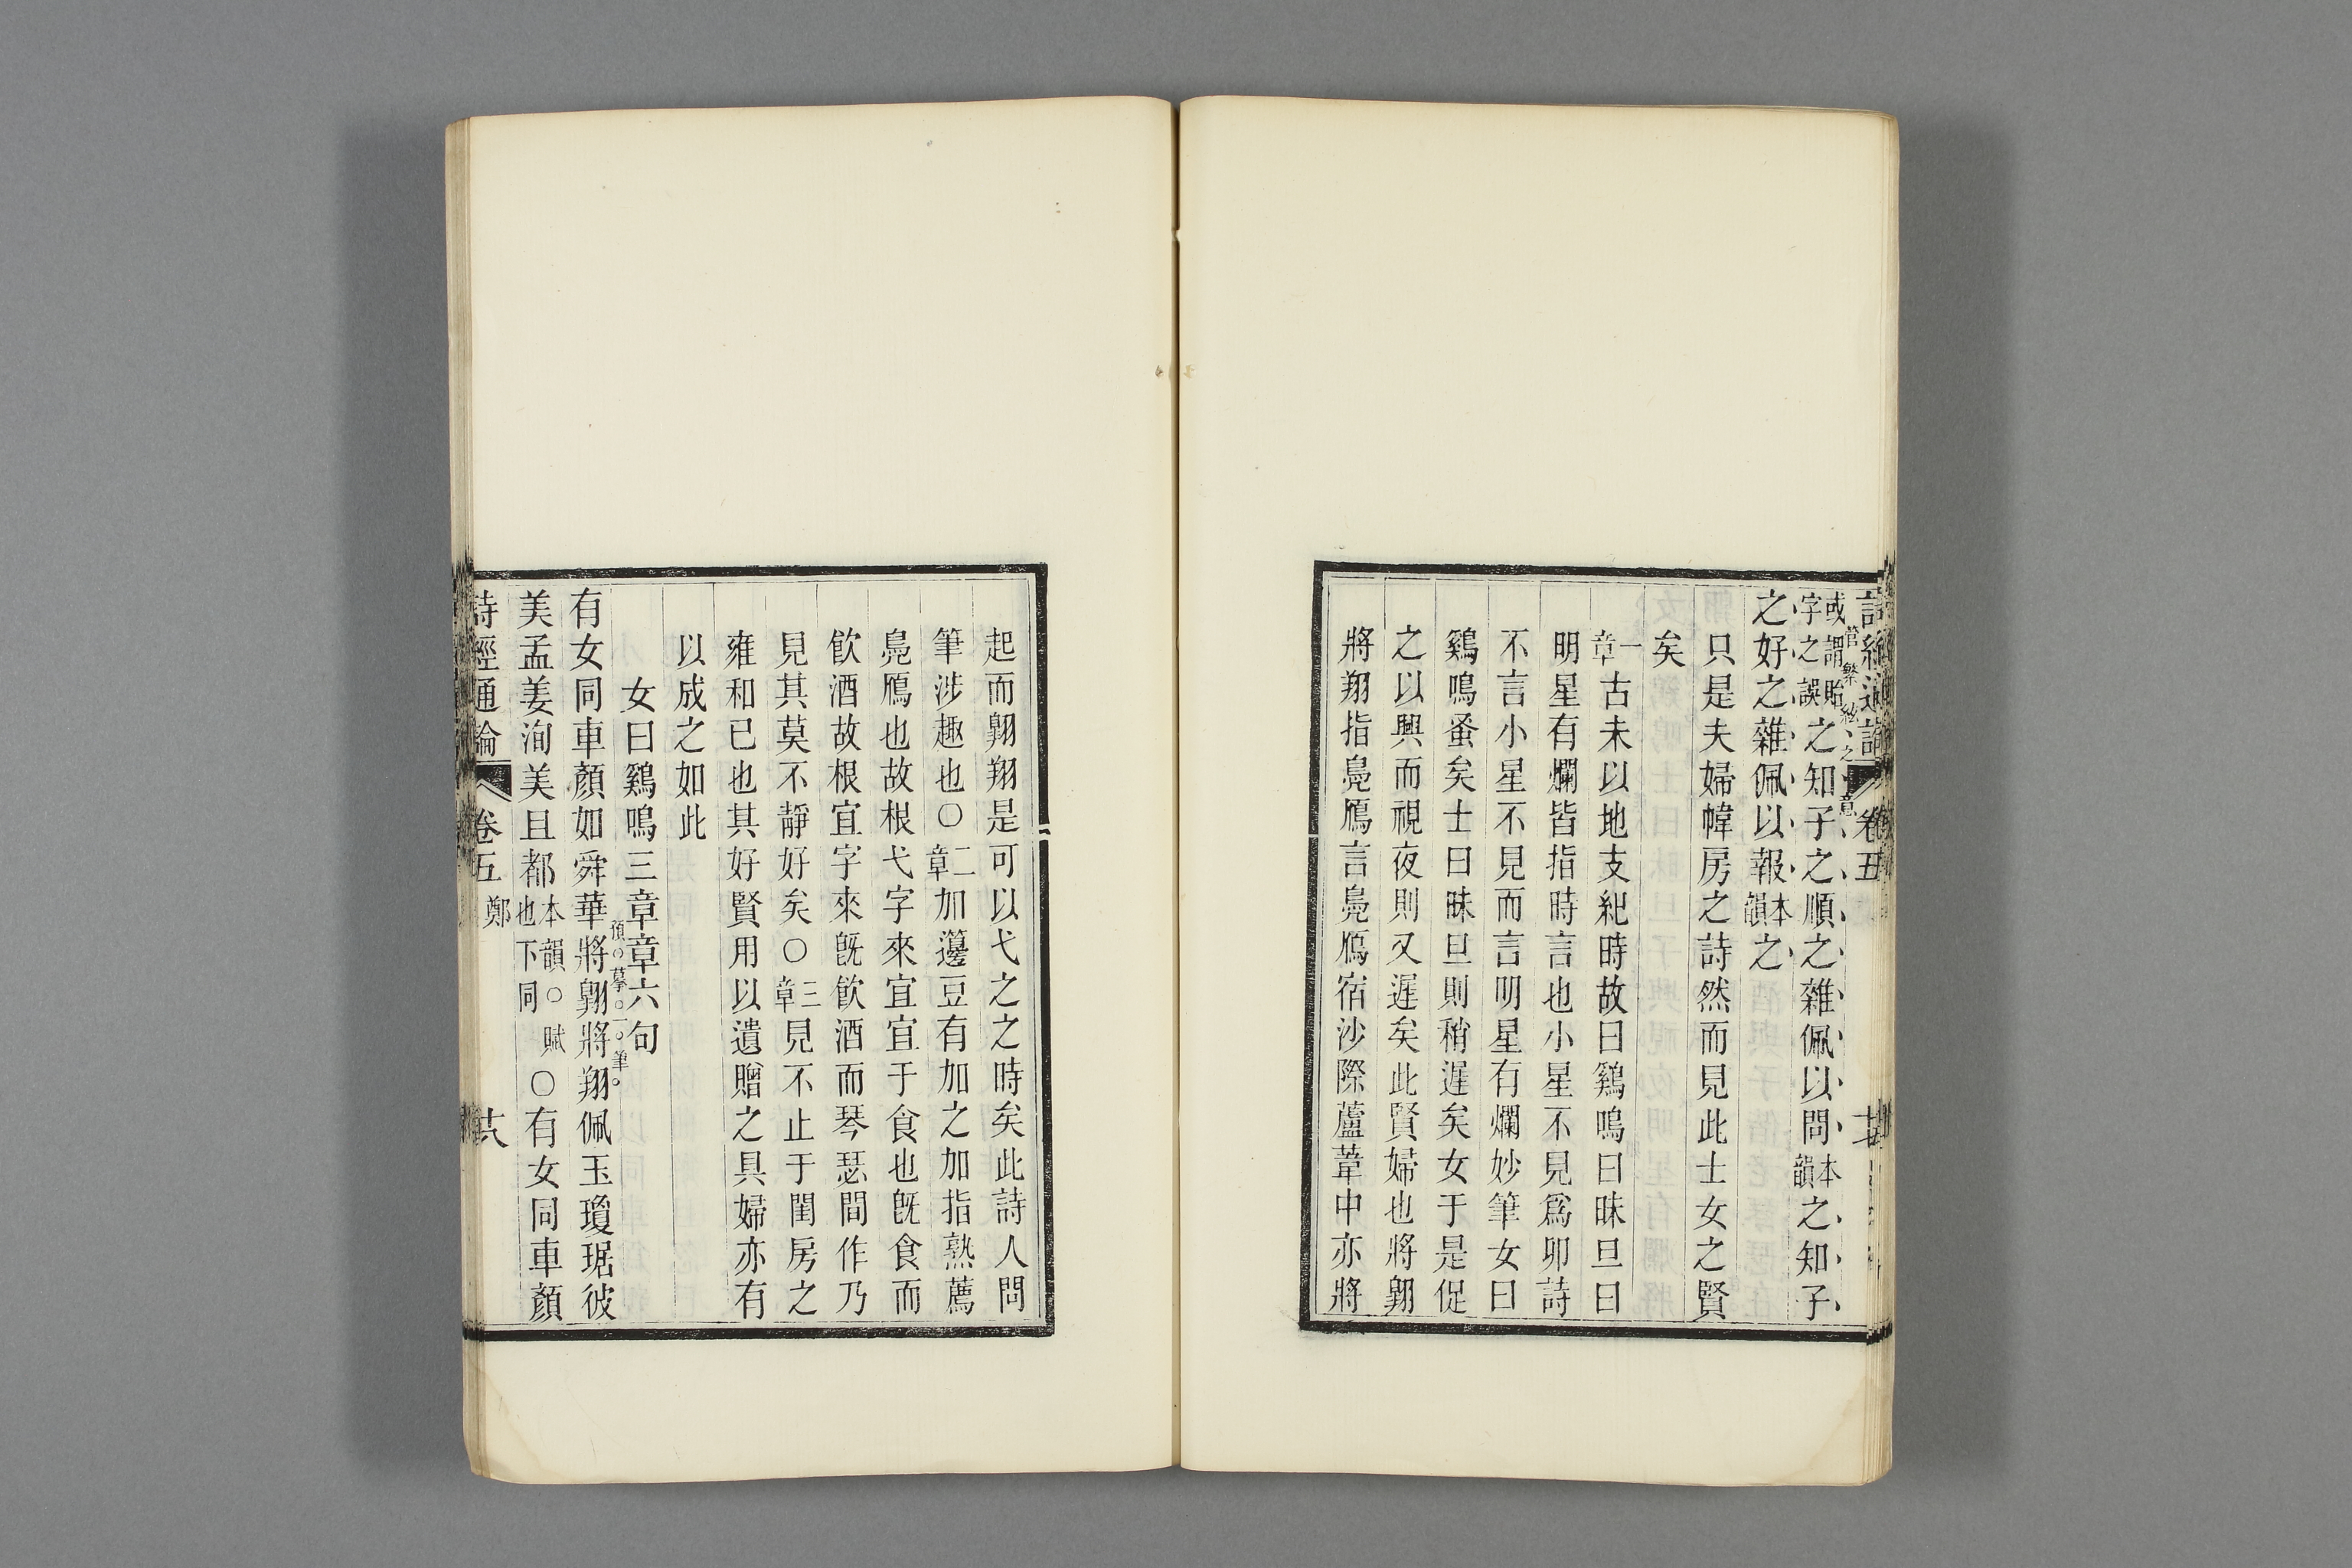 詩經通論 卷五
或謂貽字之誤之知子之順之雜佩以問本韻之知子
管繁絃之章
之好之雜佩以報本韻之
只是夫婦幃房之詩然而見此士女之賢
矣
一章古未以地支紀時故曰鷄鳴曰昧旦曰
明星有爛皆指時言也小星不見爲卯詩
不言小星不見而言明星有爛妙筆女曰
鷄鳴蚤矣士曰昧旦則稍遲矣女于是促
之以興而視夜則又遲矣此賢婦也將翱
將翔指鳧鴈言鳧鴈宿沙際蘆葦中亦將
起而翱翔是可以弋之之時矣此詩人閒
筆涉趣也○二章加籩豆有加之加指熟薦
鳧鴈也故根弋字來宜宜于食也旣食而
飮酒故根宜字來旣飮酒而琴瑟間作乃
見其莫不靜好矣○三章見不止于閨房之
雍和已也其好賢用以遺贈之具婦亦有
以成之如此
女曰鷄鳴三章章六句
有女同車顏如舜華將翱將翔佩玉瓊琚彼
預○摹○一○筆○
美孟姜洵美且都本韻○賦也下同○有女同車顏
詩經通論 卷五 鄭 六